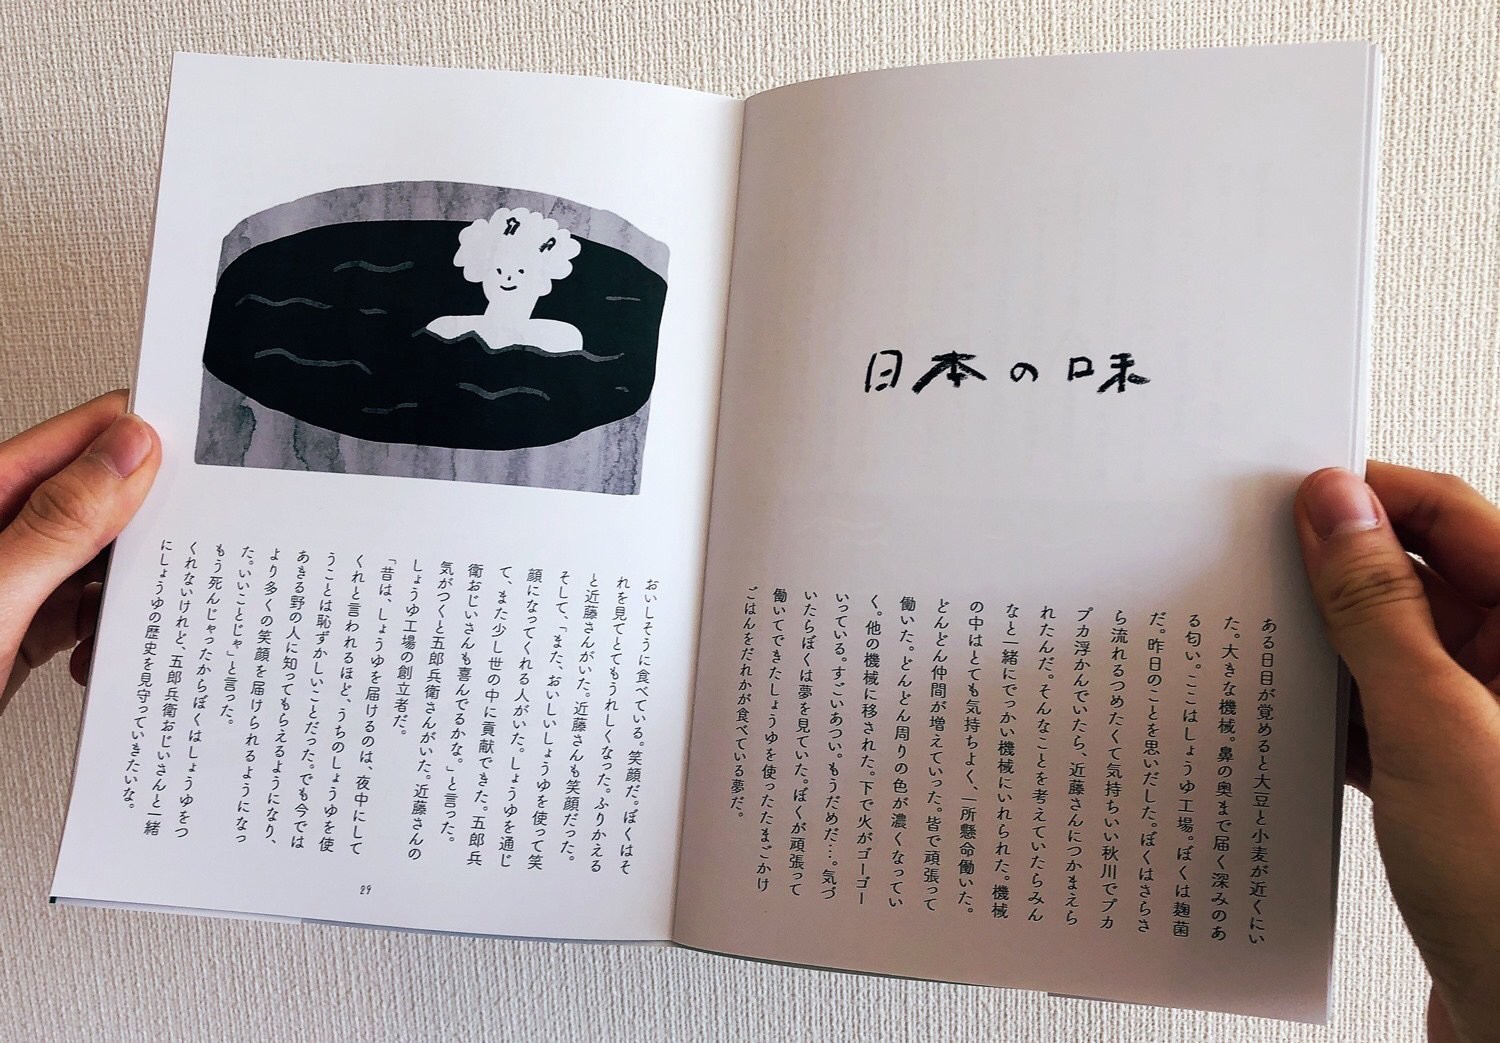 日本の味
ある日目が覚めると大豆と小麦が近くにい
た。大きな機械。鼻の奥まで届く深みのあ
る匂い。ここはしょうゆ工場。ぼくは麹菌
だ。昨日のことを思いだした。ぼくはさらさ
ら流れるつめたくて気持ちいい秋川でプカ
プカ浮かんでいたら、近藤さんにつかまえら
れたんだ。そんなことを考えていたらみん
なと一緒にでっかい機械にいれられた。機械
の中はとても気持ちよく、一所懸命働いた。
どんどん仲間が増えていった。皆で頑張って
働いた。どんどん周りの色が濃くなってい
く。他の機械に移された。下で火がゴーゴー
いっている。すごいあつい。もうだめだ…。気づ
いたらぼくは夢を見ていた。ぼくが頑張って
働いてできたしょうゆを使ったたまごかけ
ごはんをだれかが食べている夢だ。
おいしそうに食べている。笑顔だ。ぼくはそ
れを見てとてもうれしくなった。ふりかえる
と近藤さんがいた。近藤さんも笑顔だった。
そして、「また、おいしいしょうゆを使って笑
顔になってくれる人がいた。しょうゆを通じ
て、また少し世の中に貢献できた。五郎兵
衛おじいさんも喜んでるかな。」と言った。
気がつくと五郎兵衛さんがいた。近藤さんの
しょうゆ工場の創立者だ。
「昔は、しょうゆを届けるのは、夜中にして
くれと言われるほど、うちのしょうゆを使
うことは恥ずかしいことだった。でも今では
あきる野の人に知ってもらえるようになり、
より多くの笑顔を届けられるようになっ
た。いいことじゃ」と言った。
もう死んじゃったからぼくはしょうゆをつ
くれないけれど、五郎兵衛おじいさんと一緒
にしょうゆの歴史を見守っていきたいな。
29